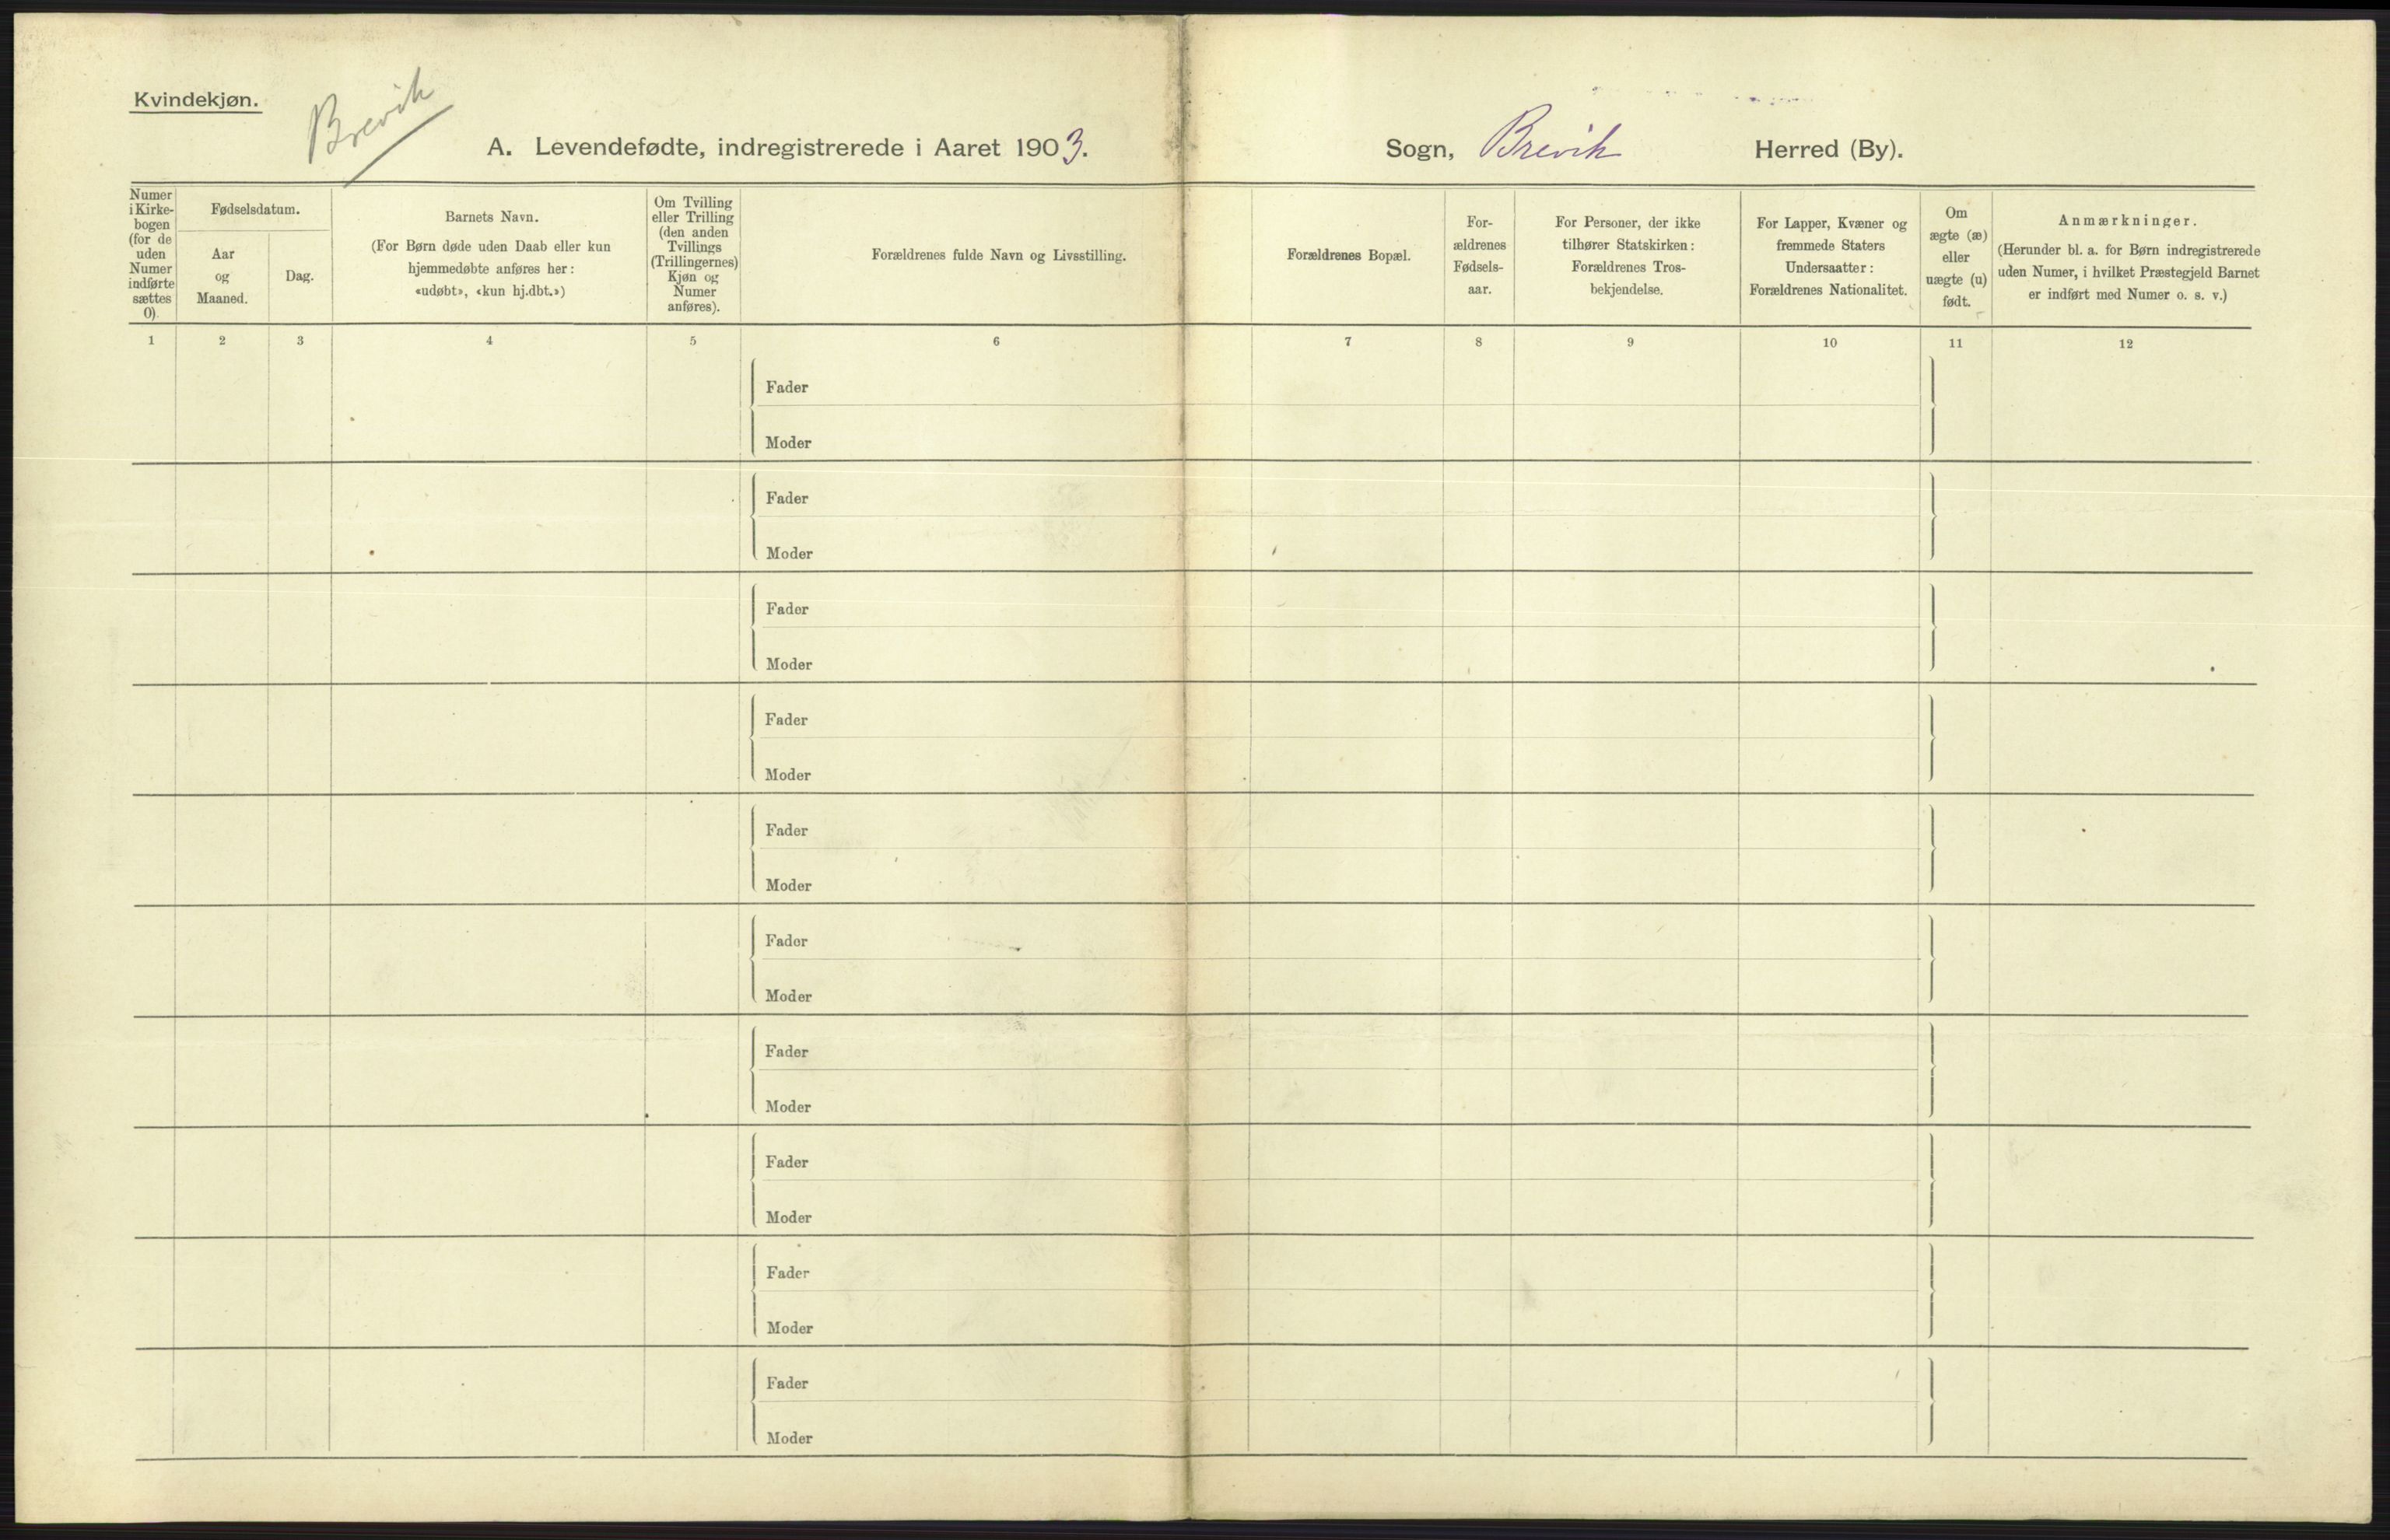 Kvindekjøn.
Brevik
A. Levendefødte, indregistrerede i Aaret 1903.
Sogn, Brevik Herred (By).
Numer
i Kirke-
bogen
(for de
uden
Numer
indførte
sættes
0)
Fødselsdatum.
Aar
og
Maaned.
Dag.
Barnets Navn.
(For Børn døde uden Daab eller kun
hjemmedøbte anføres her:
«udøbt», «kun hj.dbt.»)
Om Tvilling
eller Trilling
(den anden
Tvillings
(Trillingernes)
Kjøn og
Numer
anføres).
Forældrenes fulde Navn og Livsstilling.
Forældrenes Bopæl.
For-
ældrenes
Fødsels-
aar.
For Personer, der ikke
tilhører Statskirken:
Forældrenes Tros-
bekjendelse.
For Lapper, Kvæner og
fremmede Staters
Undersaatter:
Forældrenes Nationalitet.
Om
ægte (æ)
eller
uægte (u)
født.
Anmærkninger.
(Herunder bl. a. for Børn indregistrerede
uden Numer, i hvilket Præstegjeld Barnet
er indført med Numer o. s. v.)
1 2 3 4 5 6 7 8 9 10 11 12
Fader
Moder
Fader
Moder
Fader
Moder
Fader
Moder
Fader
Moder
Fader
Moder
Fader
Moder
Fader
Moder
Fader
Moder
Fader
Moder